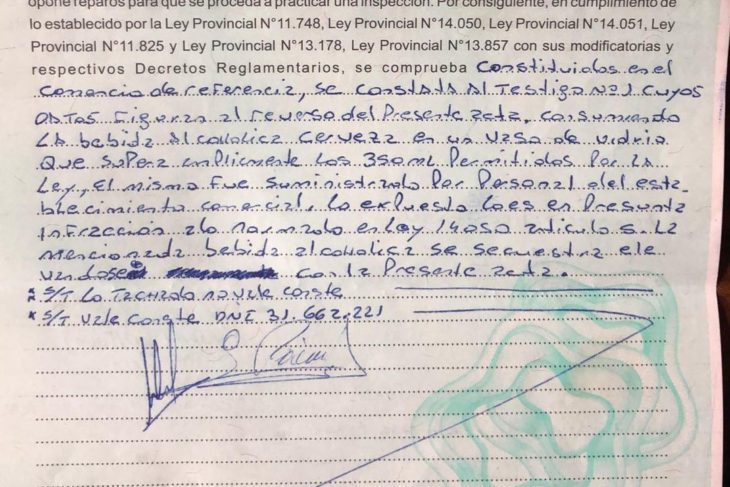 opone reparos para que se proceda a practicar una inspección. Por consiguiente, en cumplimiento de
lo establecido por la Ley Provincial N°11.748, Ley Provincial N°14.050, Ley Provincial N°14.051, Ley
Provincial N°11.825 y Ley Provincial N°13.178, Ley Provincial N°13.857 con sus modificatorias y
respectivos Decretos Reglamentarios, se comprueba Constituidos en el
comercio de referencia, se constata al Testigo Nº1 cuyos
DATOS Figuran al reverso del Presente acta, consumiendo
LA bebida Alcoholica Cerveza en un VASO de vidrio
Que SuPera ampliamente Los 350ml Permitidos Por LA
Ley, El mismo Fue Suministrado Por Personal del esta
blecimiento comercial, lo expuesto lo es en Presunta
infraccion a lo normado en Ley 14050 articulo 5. La
mencionada bebida alcoholica se secuestra ele
vandose con la Presente acta.
* S/T Lo Tachado no vale conste
* S/T vale conste DNI 31.662.221